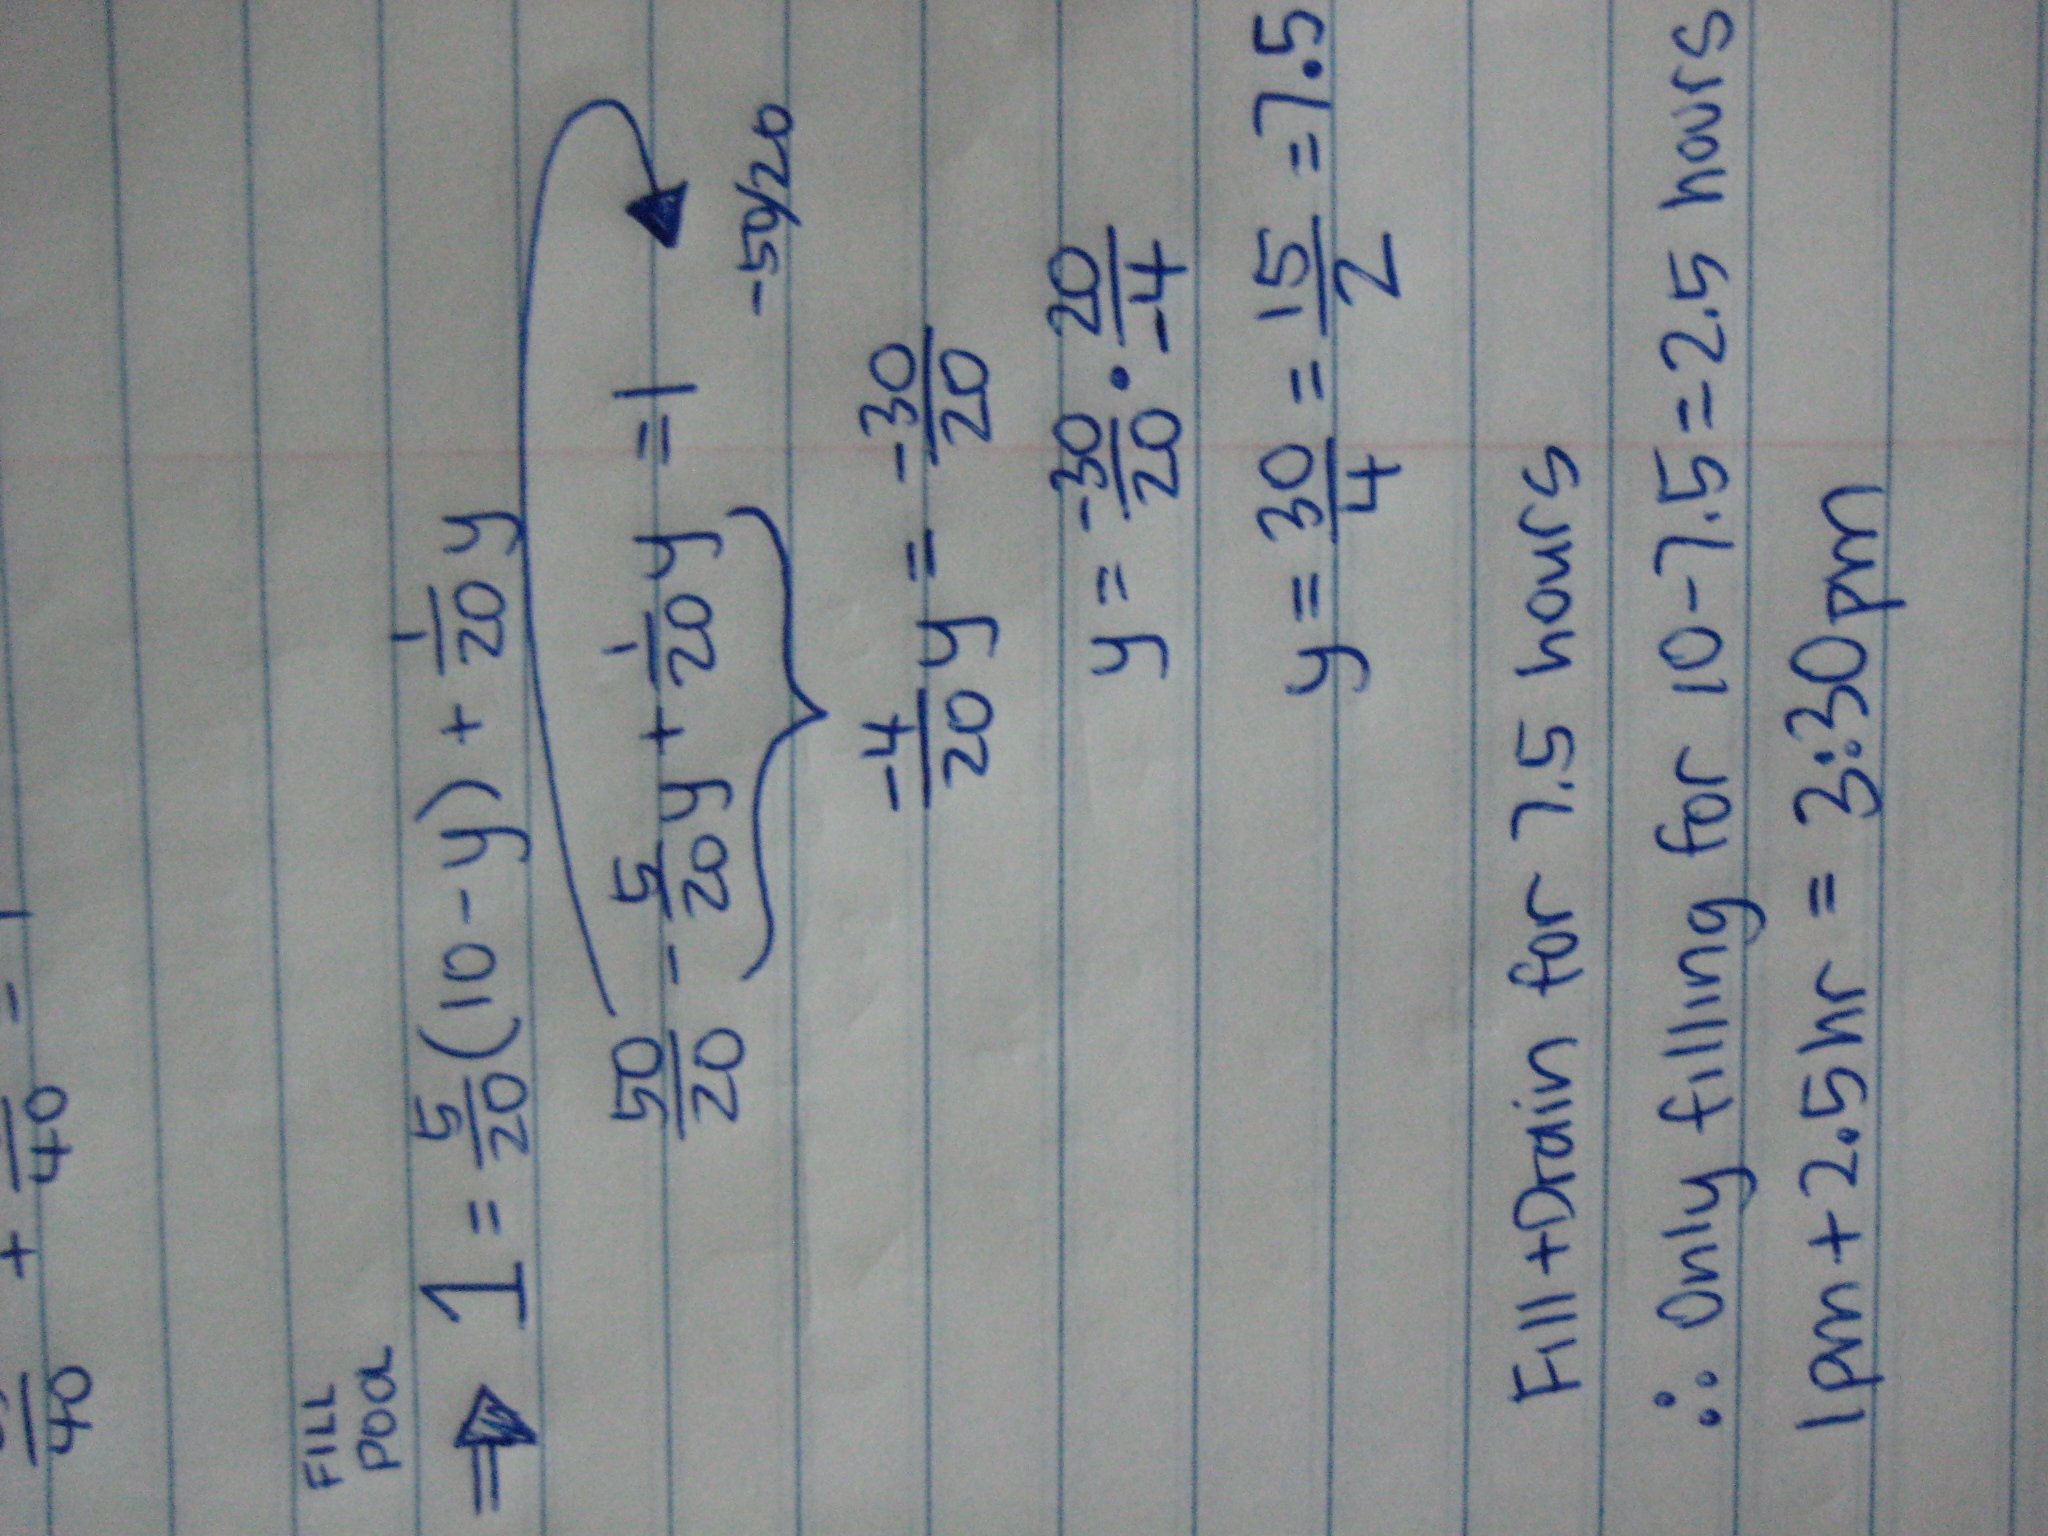 /40 + /40 = 1
FILL
POOL
⇒ 1 = 5/20 (10 - y) + 1/20 y
50/20 - 5/20 y + 1/20 y = 1
-50/20
-4/20 y = -30/20
y = -30/20 · 20/-4
y = 30/4 = 15/2 = 7.5
Fill + Drain for 7.5 hours
∴ Only filling for 10 - 7.5 = 2.5 hours
1pm + 2.5hr = 3:30pm